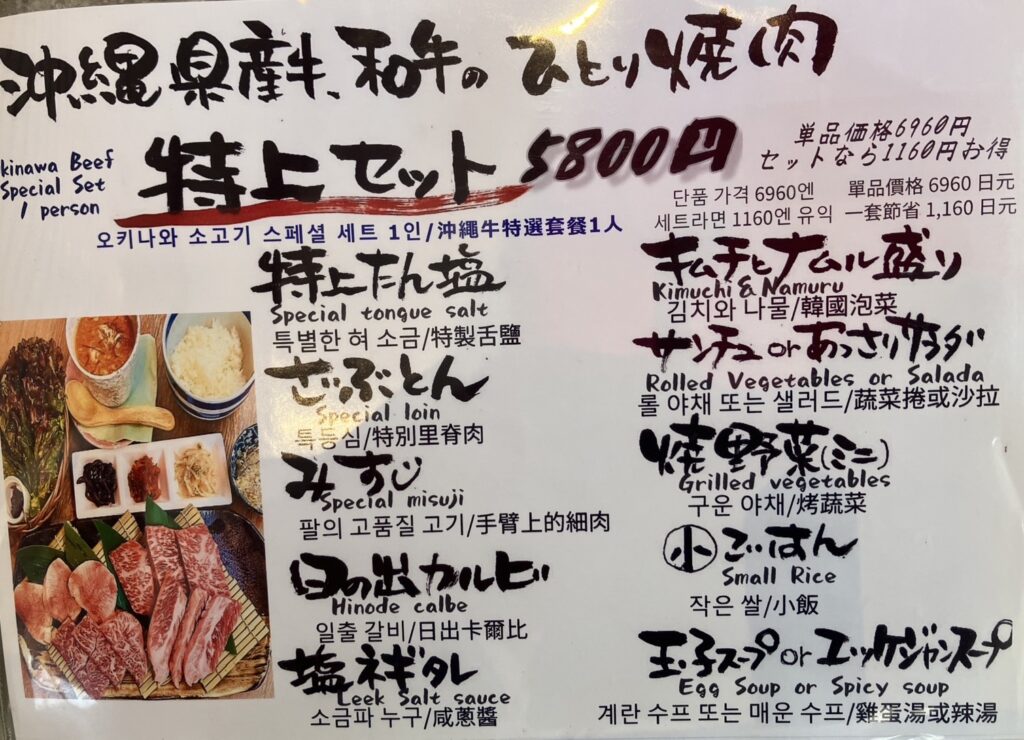 沖縄県産牛、和牛のひとり焼肉
kinawa Beef
Special Set
1 person
特上セット 5800円
単品価格6960円
セットなら1160円お得
단품 가격 6960엔
세트라면 1160엔 유익
單品價格 6960 日元
一套節省 1,160 日元
오키나와 소고기 스페셜 세트 1인/沖繩牛特選套餐1人
特上たん塩
Special tongue salt
특별한 혀 소금/特製舌鹽
ざぶとん
Special loin
특등심/特別里脊肉
みすじ
Special misuji
팔의 고품질 고기/手臂上的細肉
日の出カルビ
Hinode calbe
일출 갈비/日出卡爾比
塩ネギタレ
Leek Salt sauce
소금파 누구/咸蔥醬
キムチとナムル盛り
Kimuchi & Namuru
김치와 나물/韓國泡菜
サンチュorあっさりサラダ
Rolled Vegetables or Salada
롤 야채 또는 샐러드/蔬菜捲或沙拉
焼野菜(ミニ)
Grilled vegetables
구운 야채/烤蔬菜
小ごはん
Small Rice
작은 쌀/小飯
玉子スープorユッケジャンスープ
Egg Soup or Spicy soup
계란 수프 또는 매운 수프/雞蛋湯或辣湯